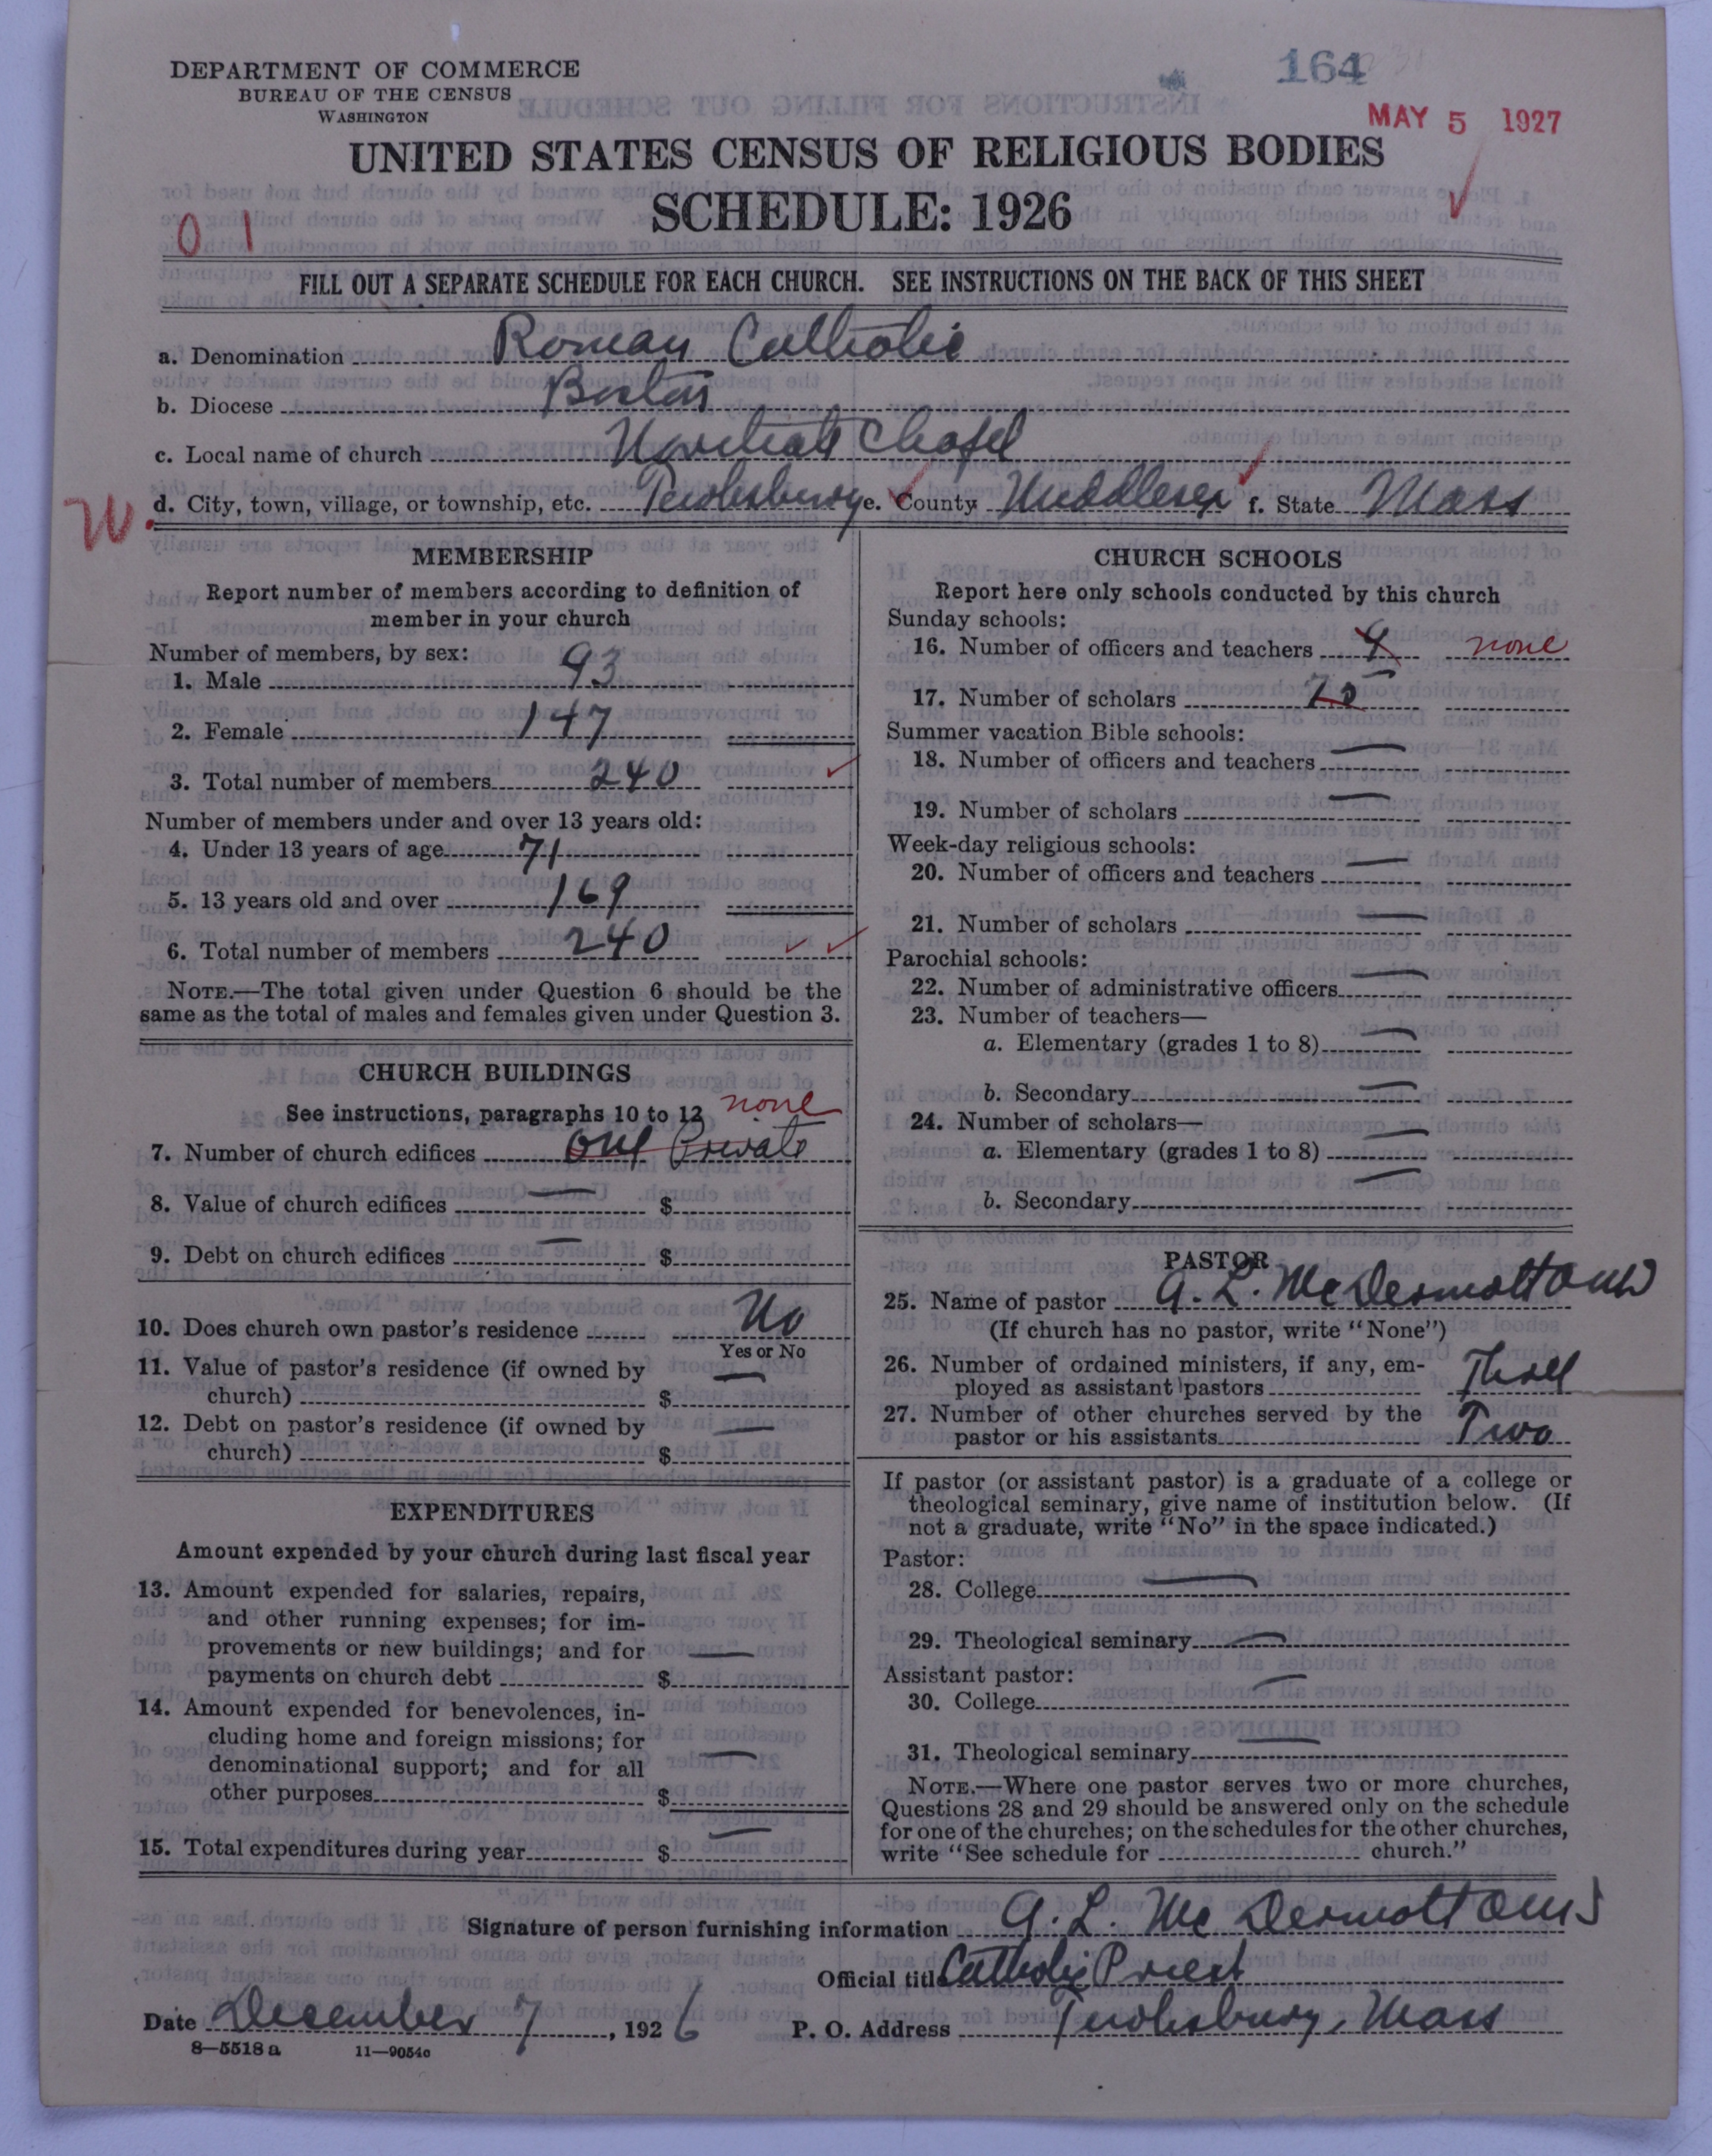 DEPARTMENT OF COMMERCE
BUREAU OF THE CENSUS
WASHINGTON
164
MAY 5 1927
UNITED STATES CENSUS OF RELIGIOUS BODIES
SCHEDULE: 1926
0 1
FILL OUT A SEPARATE SCHEDULE FOR EACH CHURCH. SEE INSTRUCTIONS ON THE BACK OF THIS SHEET
a. Denomination Roman Catholic
b. Diocese Boston
c. Local name of church Novitiate Chapel
W.
d. City, town, village, or township, etc. Tewksbury e. County Middlesex f. State Mass
MEMBERSHIP
Report number of members according to definition of
member in your church
Number of members, by sex:
1. Male 93
2. Female 147
3. Total number of members 240
Number of members under and over 13 years old:
4. Under 13 years of age 71
5. 13 years old and over 169
6. Total number of members 240
NOTE.—The total given under Question 6 should be the
same as the total of males and females given under Question 3.
CHURCH BUILDINGS
See instructions, paragraphs 10 to 12 none
7. Number of church edifices one Private
8. Value of church edifices — $
9. Debt on church edifices — $
10. Does church own pastor's residence No
Yes or No
11. Value of pastor's residence (if owned by
church) $ —
12. Debt on pastor's residence (if owned by
church) $ —
EXPENDITURES
Amount expended by your church during last fiscal year
13. Amount expended for salaries, repairs,
and other running expenses; for im-
provements or new buildings; and for
payments on church debt $ —
14. Amount expended for benevolences, in-
cluding home and foreign missions; for
denominational support; and for all
other purposes $ —
15. Total expenditures during year $ —
CHURCH SCHOOLS
Report here only schools conducted by this church
Sunday schools:
16. Number of officers and teachers 4 none
17. Number of scholars 75
Summer vacation Bible schools:
18. Number of officers and teachers —
19. Number of scholars —
Week-day religious schools:
20. Number of officers and teachers —
21. Number of scholars —
Parochial schools:
22. Number of administrative officers —
23. Number of teachers—
a. Elementary (grades 1 to 8) —
b. Secondary —
24. Number of scholars—
a. Elementary (grades 1 to 8) —
b. Secondary —
PASTOR
25. Name of pastor G. L. McDermott OMI
(If church has no pastor, write "None")
26. Number of ordained ministers, if any, em-
ployed as assistant pastors Three
27. Number of other churches served by the
pastor or his assistants Two
If pastor (or assistant pastor) is a graduate of a college or
theological seminary, give name of institution below. (If
not a graduate, write "No" in the space indicated.)
Pastor:
28. College —
29. Theological seminary —
Assistant pastor:
30. College —
31. Theological seminary —
NOTE.—Where one pastor serves two or more churches,
Questions 28 and 29 should be answered only on the schedule
for one of the churches; on the schedules for the other churches,
write "See schedule for church."
Signature of person furnishing information G. L. McDermott OMI
Official title Catholic Priest
Date December 7, 1926 P. O. Address Tewksbury, Mass
8—5518a 11—9054c